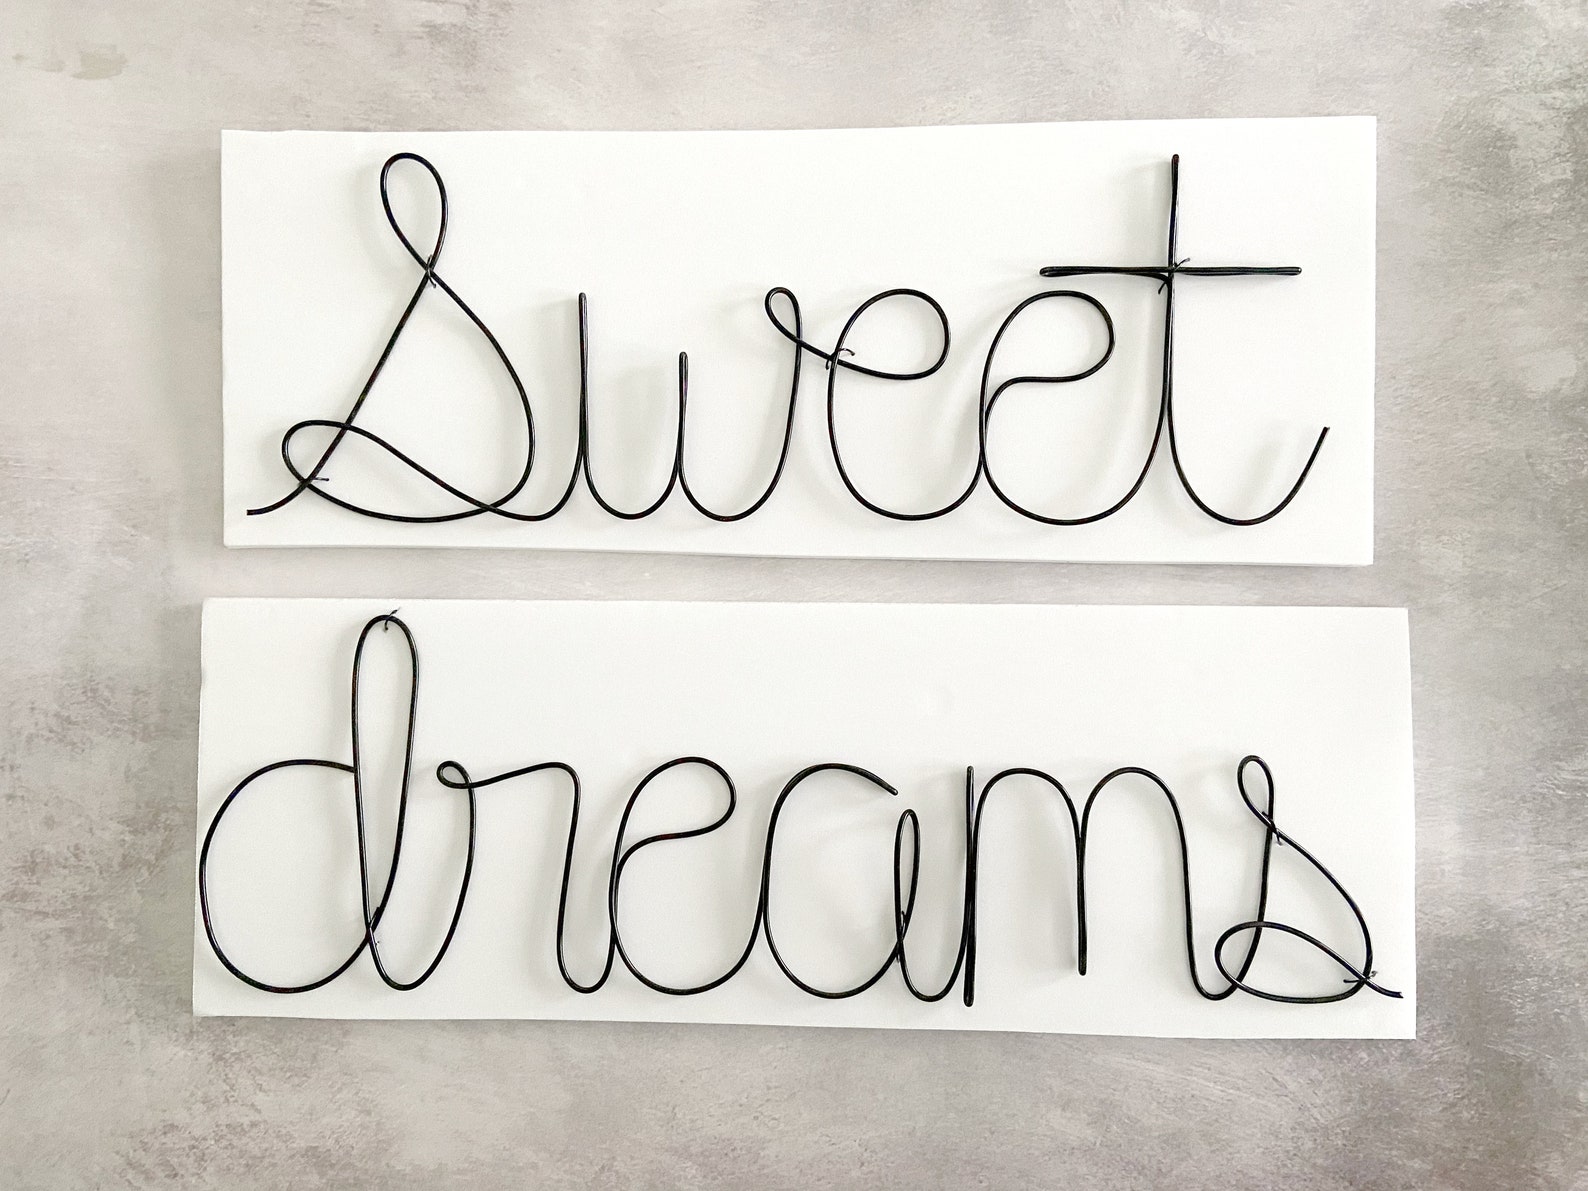 Sweet
dreams